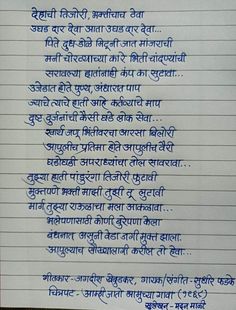 देहाची तिजोरी, भक्तीचाच ठेवा
उघड दार देवा आता उघड दार देवा...
पिते दूध डोळे मिटूनी जात मांजराची
मनी चोरट्याच्या कारे भिती चांदण्याची
सरावल्या हातांनाही कंप का सुटावा...
उजेडात होते पुण्य, अंधारात पाप
ज्याचे त्याचे हाती आहे कर्तव्याचे माप
दुष्ट दुर्जनांची कैसी घडे लोक सेवा...
स्वार्थ जणू भिंतीवरचा आरसा बिलोरी
आपुलीच प्रतिमा होते आपुलीच वैरी
घडोघडी अपराध्यांचा तोल सावरावा...
तुझ्या हाती पांडुरंगा तिजोरी फुटावी
मुक्तपणे भक्ती माझी तुझी तू लुटावी
मार्ग तुझ्या राऊळाचा मला आकळावा...
भलेपणासाठी कोणी बुरेपणा केला
बंधनात असुनी वेडा जगी मुक्त झाला
आपुल्याच सौख्यालागी करील तो हेवा...
गीतकार - जगदीश खेबुडकर, गायक/संगीत - सुधीर फडके
चित्रपट - आम्ही जातो आमुच्या गावा (१९६८)
सुलेखन - मदन माळी